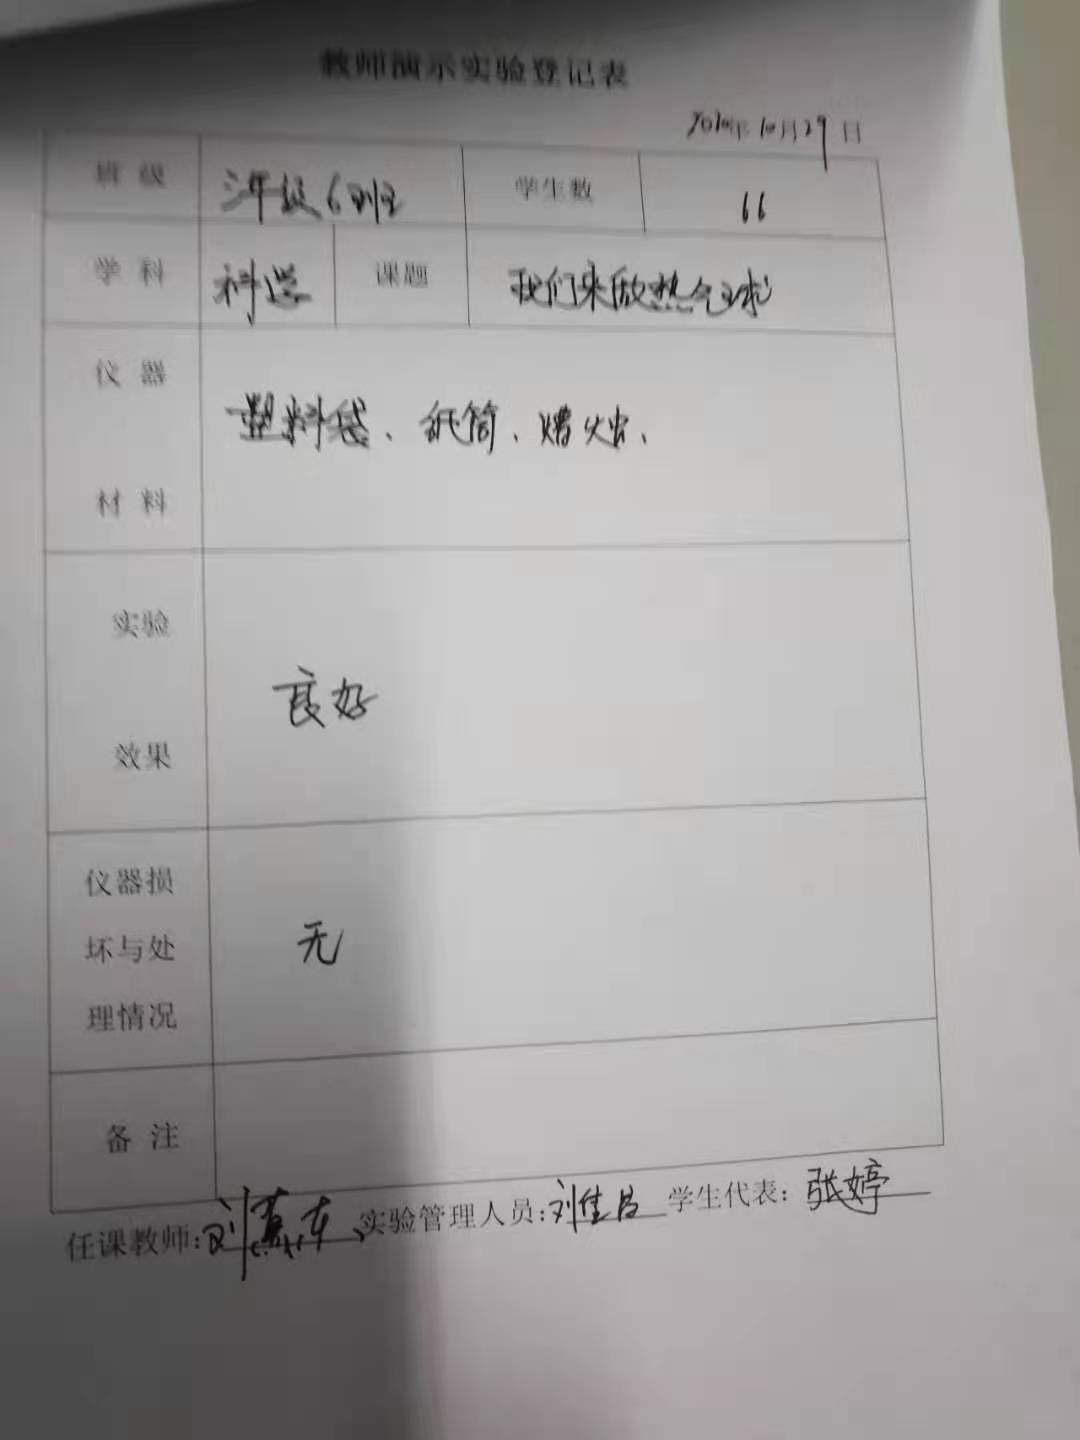 教师演示实验登记表
2020年10月29日
班级 三年级6班 学生数 66
学科 科学 课题 我们来做热气球
仪器材料 塑料袋、纸筒、蜡烛、
实验效果 良好
仪器损坏与处理情况 无
备注
任课教师: 刘 东 实验管理人员: 刘佳 学生代表: 张婷